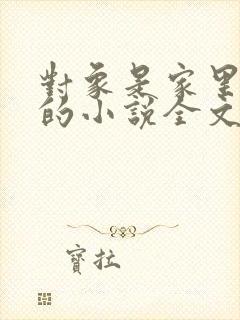 對象是家里
的小說全文
寶拉